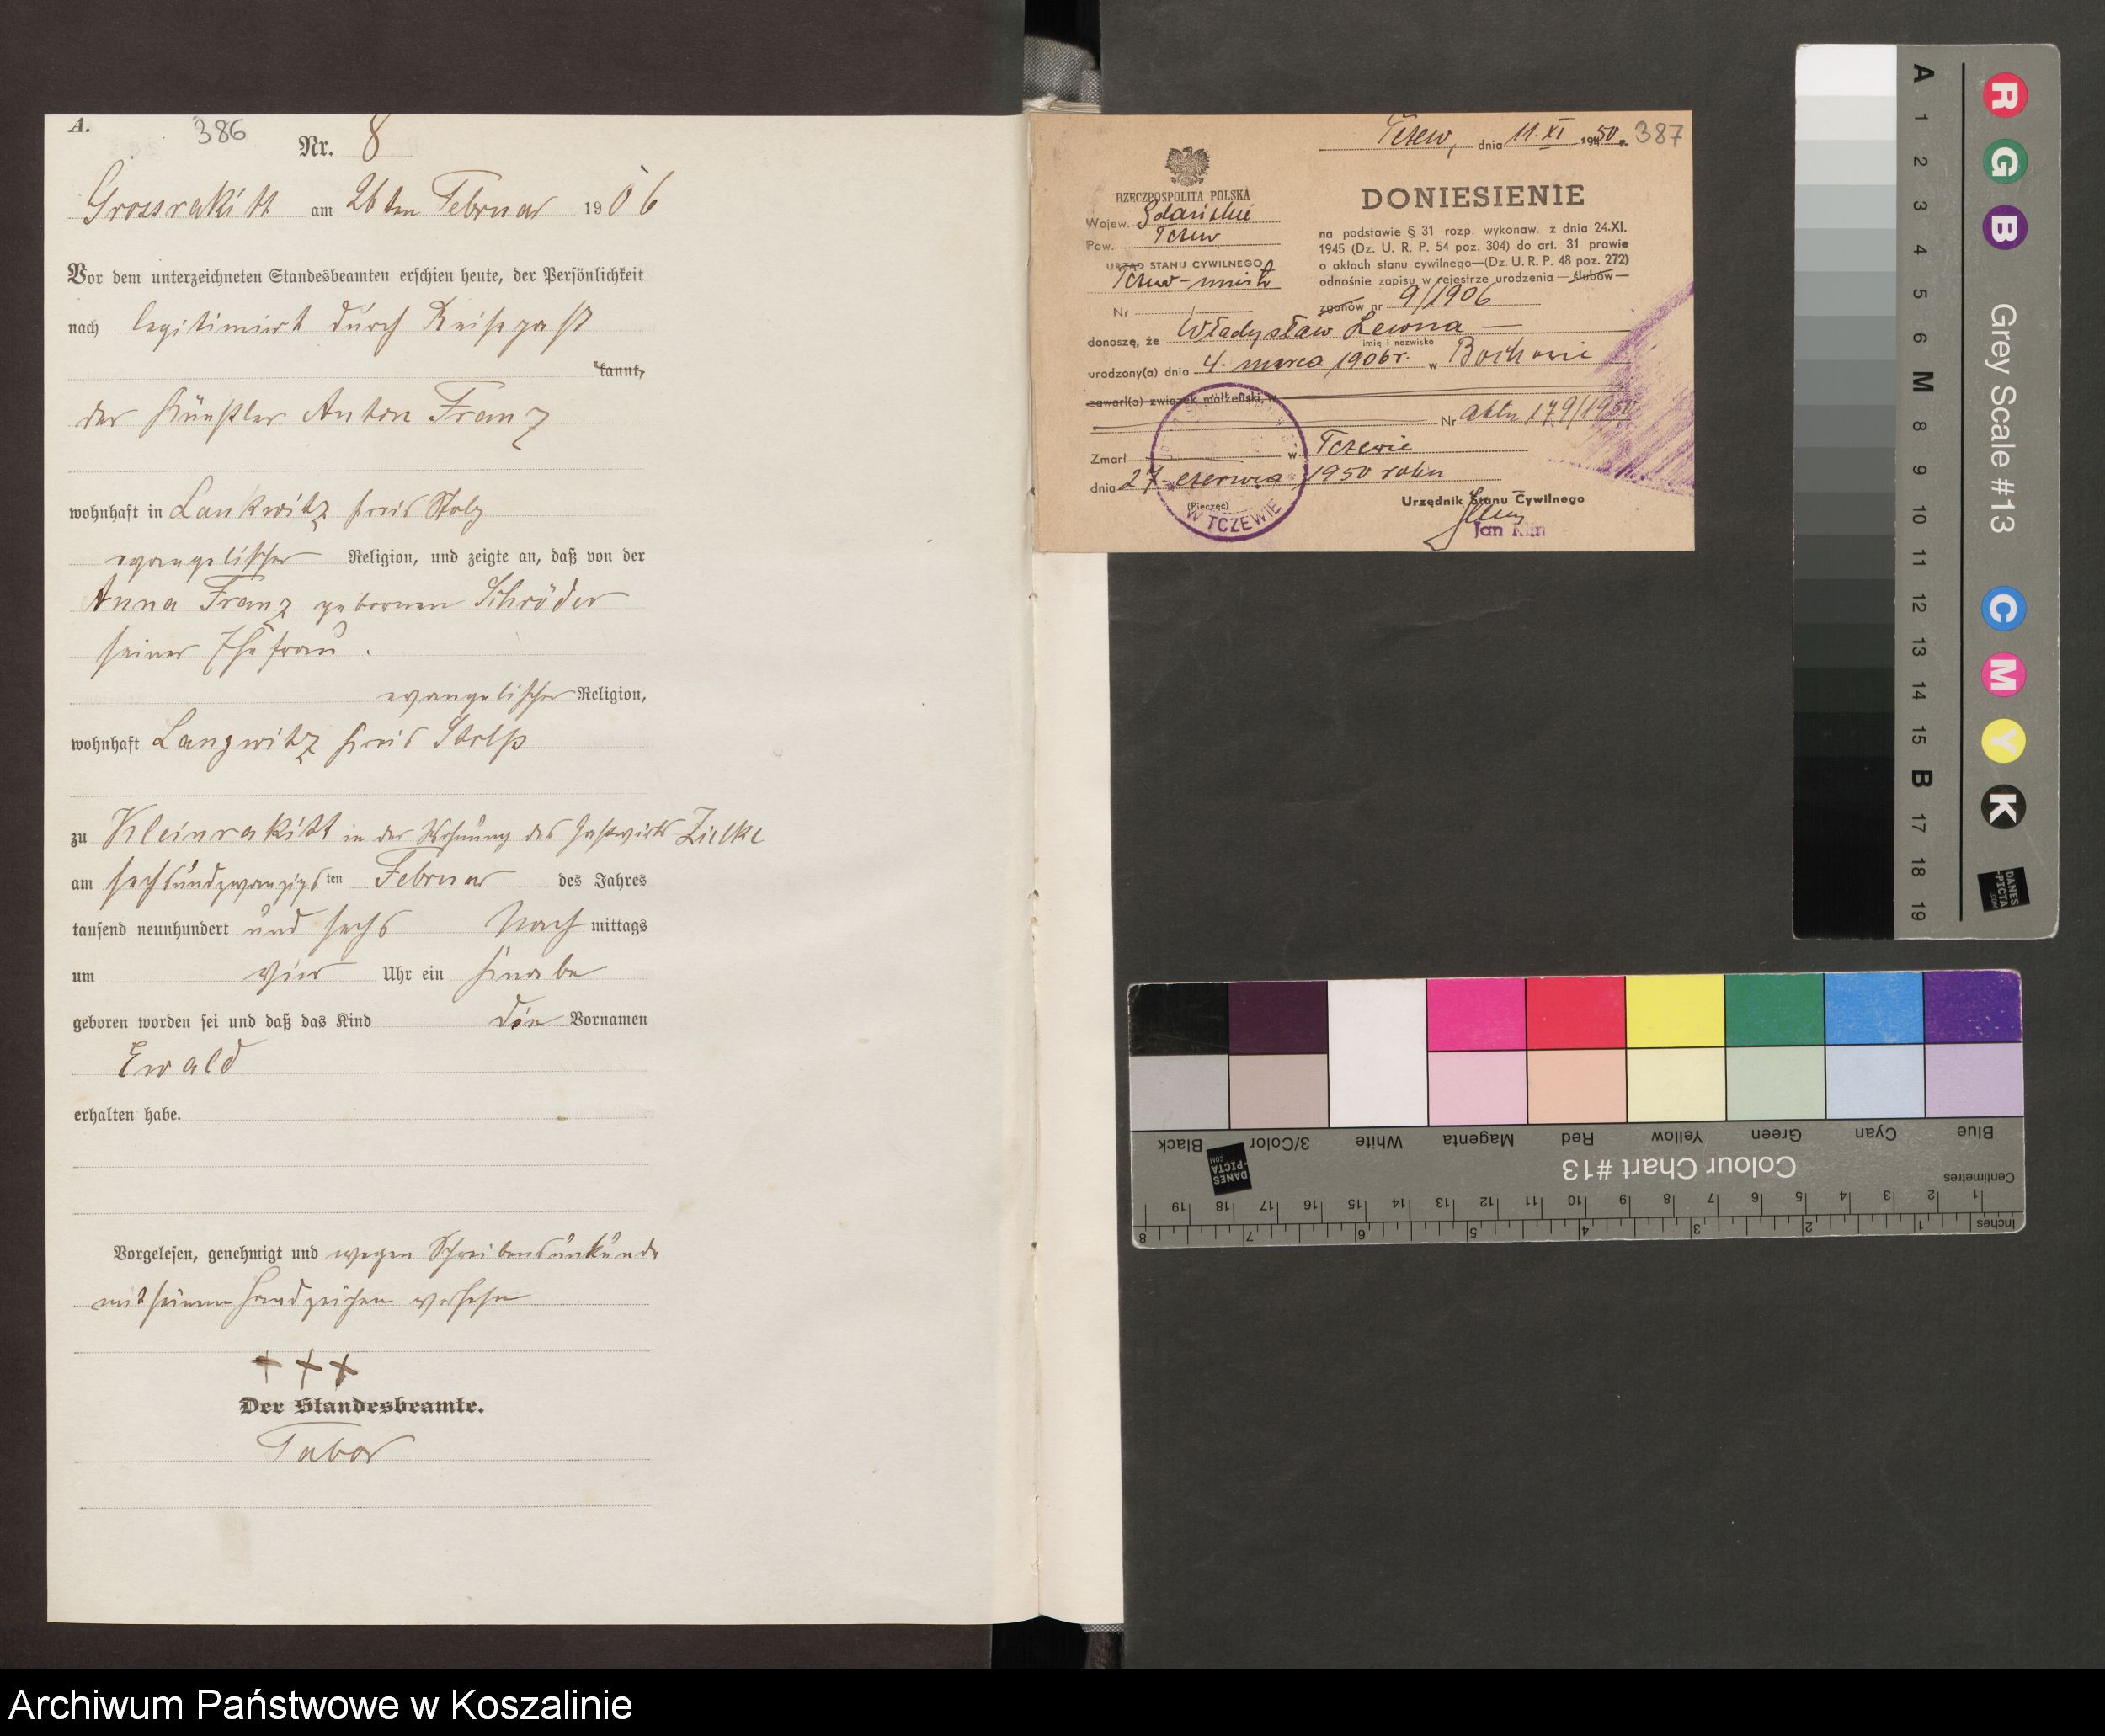 A.
386
Nr. 8
Grossrakitt am 26ten Februar 1906
Vor dem unterzeichneten Standesbeamten erschien heute, der Persönlichkeit
nach legitimiert durch Reisepaß
kannt,
der Künstler Anton Franz
wohnhaft in Lankwitz Kreis Stolp
evangelischer Religion, und zeigte an, daß von der
Anna Franz geborenen Schröder
seiner Ehefrau.
evangelischer Religion,
wohnhaft Langwitz Kreis Stolp
zu Kleinrakitt in der Wohnung des Gastwirts Zielke
am sechsundzwanzigsten Februar des Jahres
tausend neunhundert und sechs Nachmittags
um vier Uhr ein Knabe
geboren worden sei und daß das Kind den Vornamen
Ewald
erhalten habe.
Vorgelesen, genehmigt und wegen Schreibensunkunde
mit seinem Handzeichen versehen
+ + +
Der Standesbeamte.
Tabor
Tczew, dnia 11. XI 1950 r. 387
RZECZPOSPOLITA POLSKA
Wojew. Gdańskie
Pow. Tczew
URZĄD STANU CYWILNEGO
Tczew-miasto
Nr
DONIESIENIE
na podstawie § 31 rozp. wykonaw. z dnia 24.XI.
1945 (Dz. U. R. P. 54 poz. 304) do art. 31 prawie
o aktach stanu cywilnego—(Dz. U. R. P. 48 poz. 272)
odnośnie zapisu w rejestrze urodzenia — ślubów —
zgonów nr 9/1906
donoszę, że Władysław Lewna —
imię i nazwisko
urodzony(a) dnia 4. marca 1906 r. w Bochowie
zawarł(a) związek małżeński, w
Nr aktu 179/1950
Zmarł w Tczewie
dnia 27 czerwca 1950 roku
(Pieczęć)
W TCZEWIE
Urzędnik Stanu Cywilnego
Jan Klin
A 1 2 3 4 5 6 M 8 9 10 11 12 13 14 15 B 17 18 19
R G B Grey Scale #13 C M Y K
DANES
-PICTA
.COM
Black 3/Color White Magenta Red Yellow Green Cyan Blue
Colour Chart #13
DANES
-PICTA
.COM
Centimetres
19 18 17 16 15 14 13 12 11 10 9 8 7 6 5 4 3 2 1
8 7 6 5 4 3 2 1 Inches
Archiwum Państwowe w Koszalinie